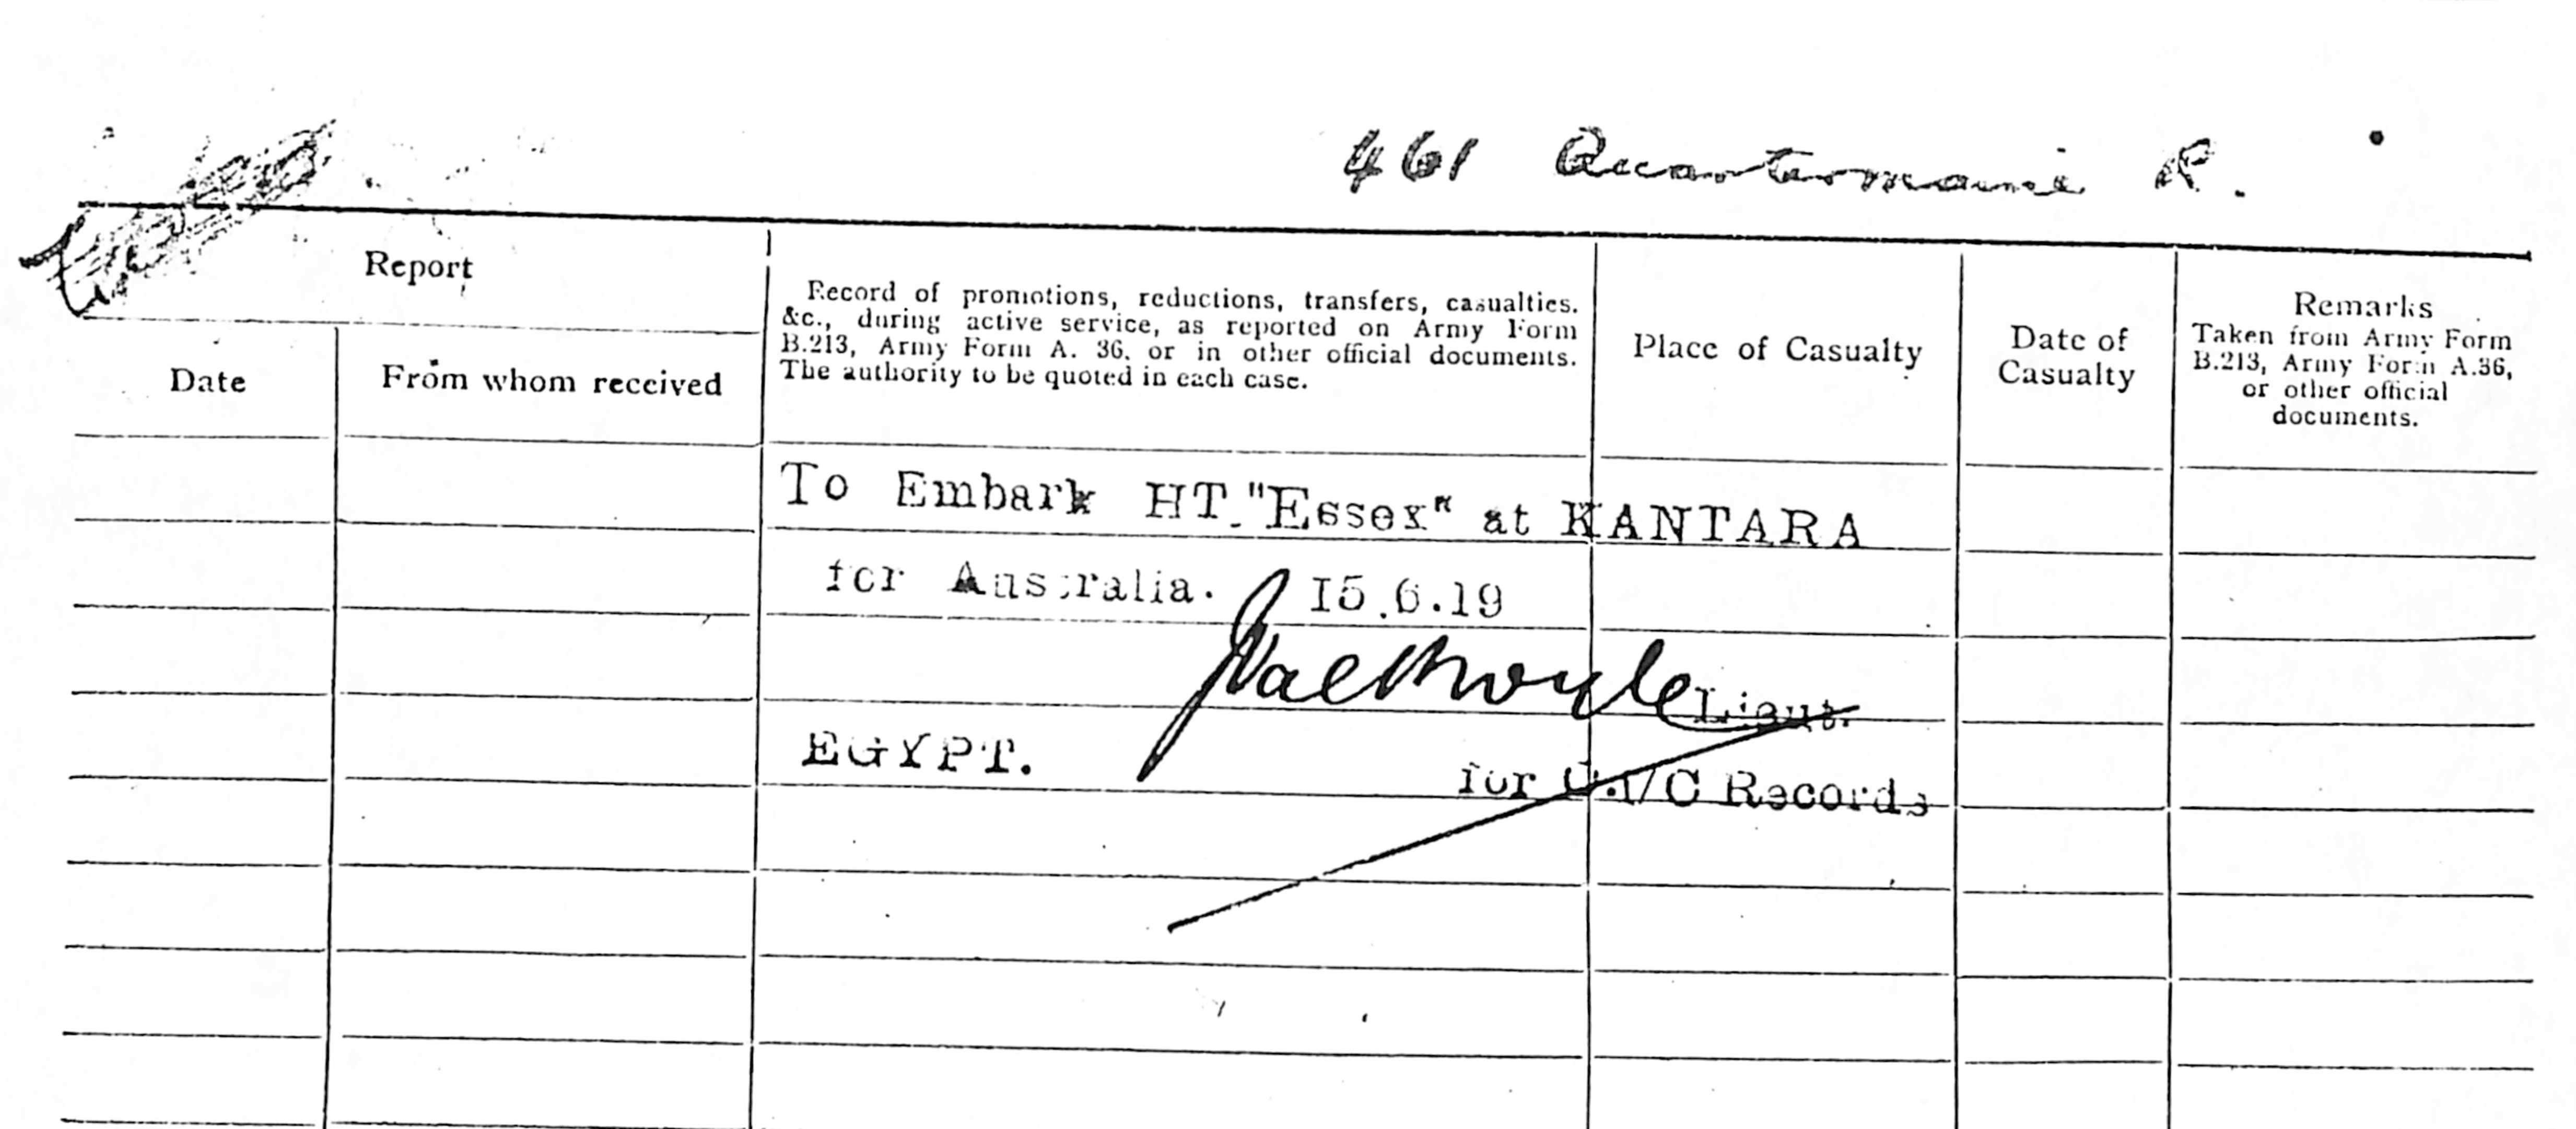 461 Quartermaine R.
Report
Date
From whom received
Record of promotions, reductions, transfers, casualties.
&c., during active service, as reported on Army Form
B.213, Army Form A. 36. or in other official documents.
The authority to be quoted in each case.
Place of Casualty
Date of
Casualty
Remarks
Taken from Army Form
B.213, Army Form A.36,
or other official
documents.
To Embark HT."Essex" at KANTARA
for Australia. 15.6.19
Lieut.
EGYPT.
for O.I/C Records